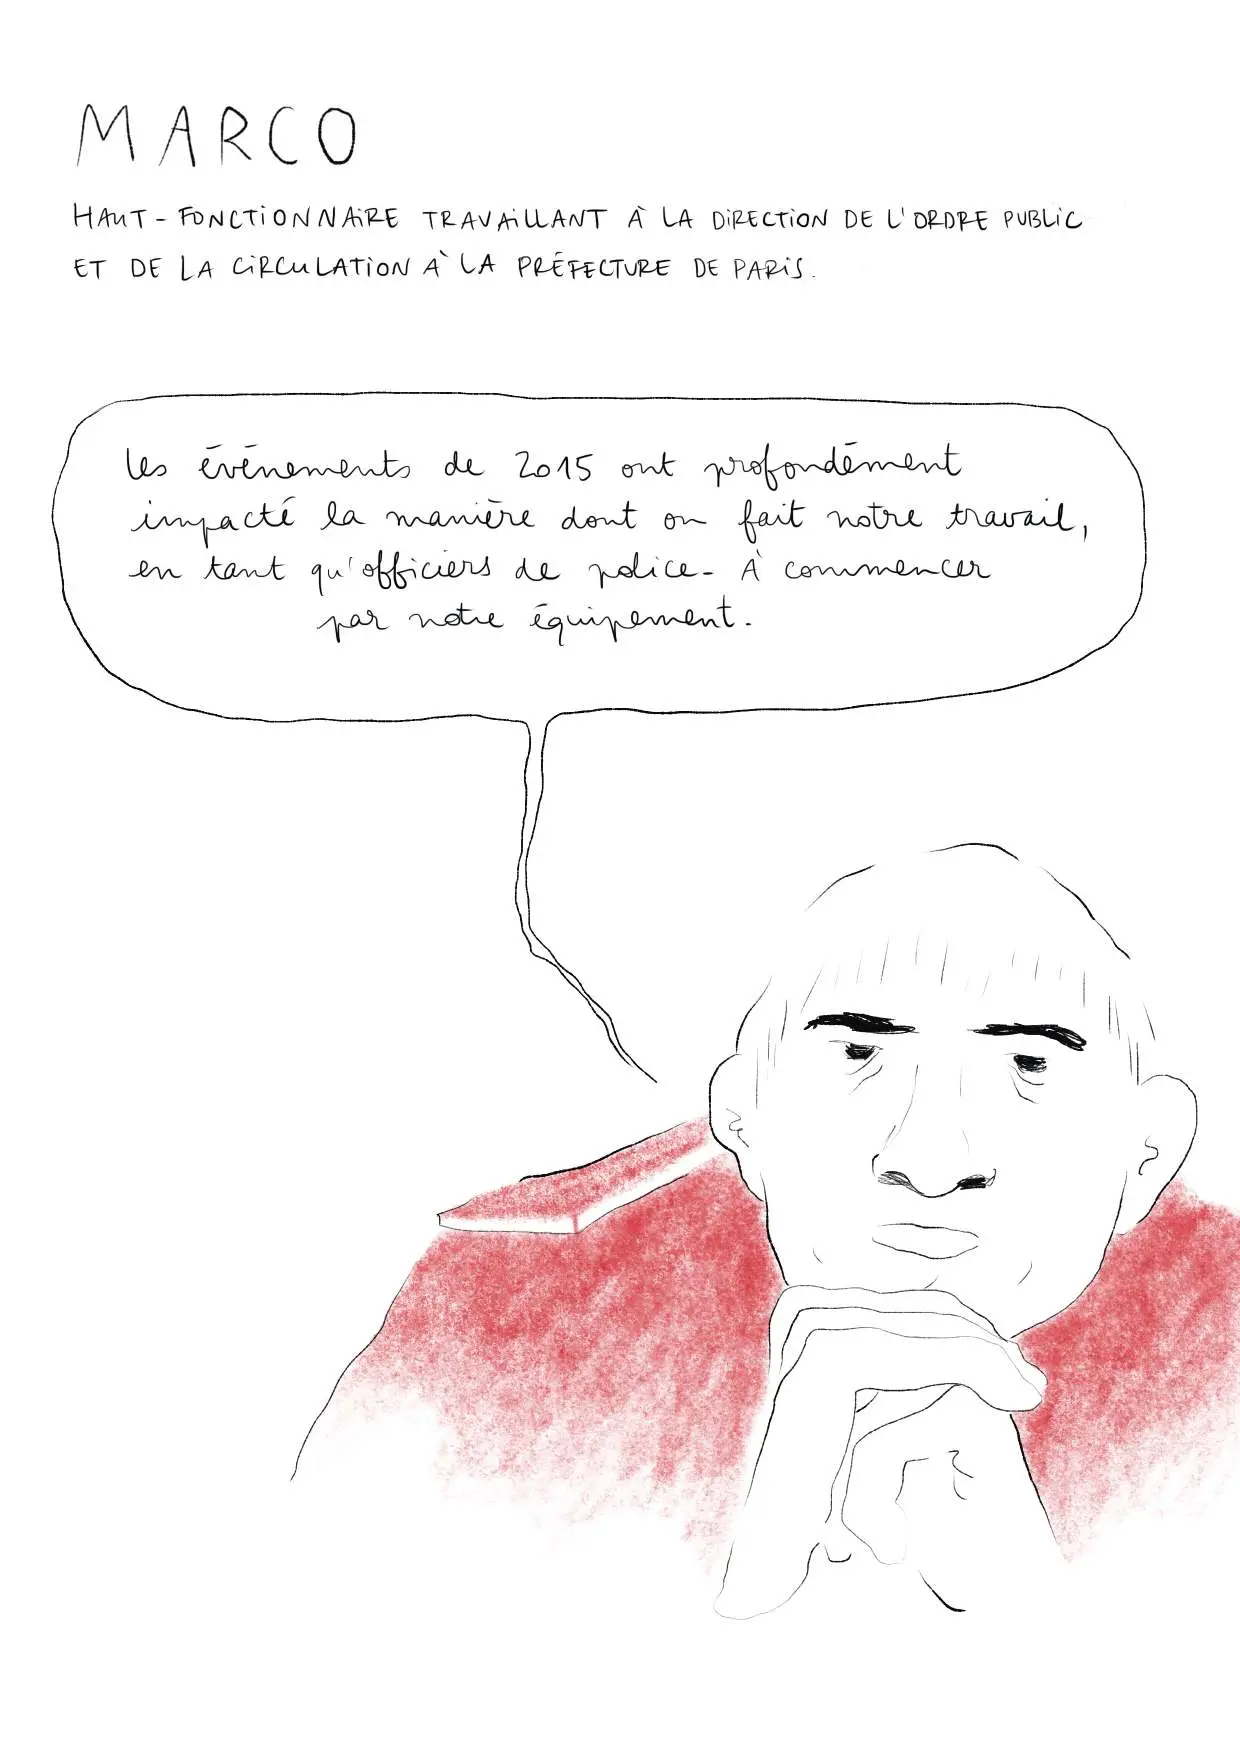 MARCO
HAUT-FONCTIONNAIRE TRAVAILLANT À LA DIRECTION DE L'ORDRE PUBLIC
ET DE LA CIRCULATION À LA PRÉFECTURE DE PARIS.
Les événements de 2015 ont profondément
impacté la manière dont on fait notre travail,
en tant qu'officiers de police. À commencer
par notre équipement.